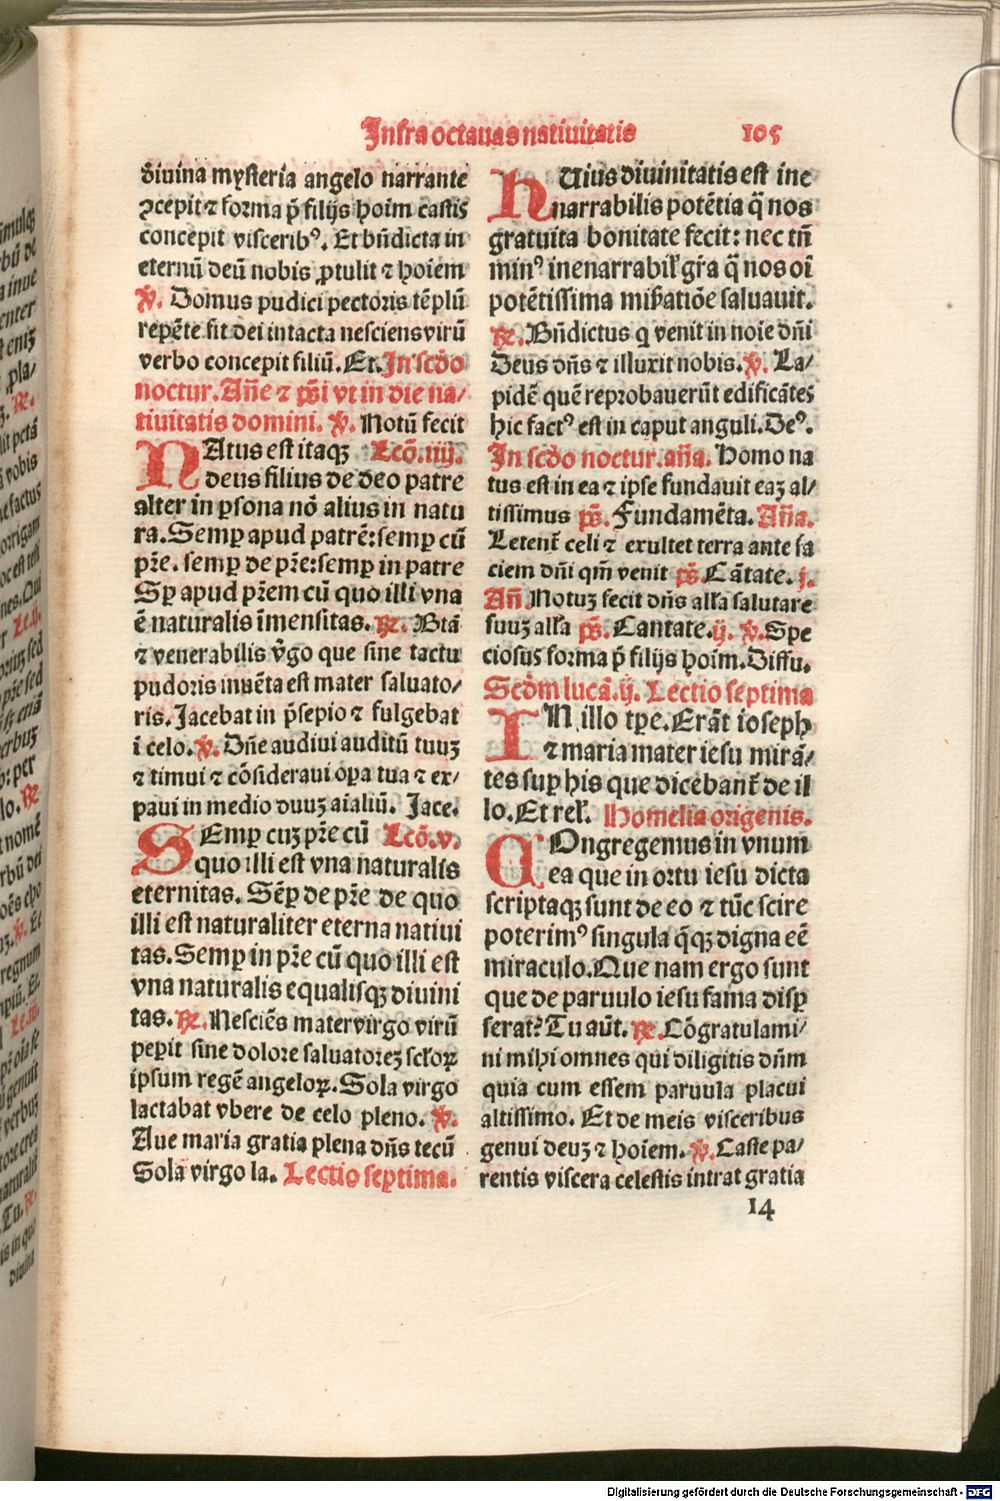 Infra octauas natiuitatis 105
diuina mysteria angelo narrante
ꝯcepit ⁊ forma p̄ filijs hoīm castis
concepit visceribꝰ. Et bn̄dicta in
eternū deū nobis ꝓtulit ⁊ hoīem
℣. Domus pudici pectoris tēplū
repēte fit dei intacta nesciens virū
verbo concepit filiū. Et. In scd̄o
noctur. Añe ⁊ ps̄i vt in die na/
tiuitatis domini. ℣. Notū fecit
NAtus est itaqꝫ Lcō. iiij.
deus filius de deo patre
alter in ꝑsona nō alius in natu
ra. Semꝑ apud patrē: semꝑ cū
pr̄e. semꝑ de pr̄e: semꝑ in patre
Sꝑ apud pr̄em cū quo illi vna
ē naturalis īmensitas. ℟. Btā
⁊ venerabilis v̄go que sine tactu
pudoris inuēta est mater saluato/
ris. Jacebat in p̄sepio ⁊ fulgebat
ī celo. ℣. Dn̄e audiui auditū tuuꝫ
⁊ timui ⁊ cōsideraui oꝑa tua ⁊ ex/
paui in medio duuꝫ aīaliū. Jace.
SEmꝑ cuꝫ pr̄e cū Lcō. v.
quo illi est vna naturalis
eternitas. Sēꝑ de pr̄e de quo
illi est naturaliter eterna natiui
tas. Semꝑ in pr̄e cū quo illi est
vna naturalis equalisqꝫ diuini
tas. ℟. Nesciēs mater virgo virū
peperit sine dolore saluatoreꝫ scl̄oꝝ
ipsum regē angeloꝝ. Sola virgo
lactabat vbere de celo pleno. ℣.
Aue maria gratia plena dn̄s tecū
Sola virgo la. Lectio septima.
hUius diuinitatis est ine
narrabilis potētia q̄ nos
gratuita bonitate fecit: nec tn̄
minꝰ inenarrabil' gr̄a q̄ nos oī
potētissima mis̄atiōe saluauit.
℟. Bn̄dictus q venit in noīe dn̄i
Deus dn̄s ⁊ illuxit nobis. ℣. La/
pidē quē reprobauerūt edificātes
hic factꝰ est in caput anguli. Deꝰ.
In scd̄o noctur. añā. Homo na
tus est in ea ⁊ ipse fundauit eaꝫ al/
tissimus ps̄. Fundamēta. Añā.
Letent̄ celi ⁊ exultet terra ante fa
ciem dn̄i qm̄ venit ps̄. Cātate. j.
Añ. Notuꝫ fecit dn̄s alĺa salutare
suuꝫ alĺa ps̄. Cantate. ij. ℣. Spe
ciosus forma p̄ filijs hoīm. Diffu.
Scd̄m lucā. ij. Lectio septima
IN illo tꝑe. Erāt ioseph
⁊ maria mater iesu mirā/
tes suꝑ his que dicebant̄ de il
lo. Et rel'. Homelia origenis.
COngregemus in vnum
ea que in ortu iesu dicta
scriptaqꝫ sunt de eo ⁊ tūc scire
poterimꝰ singula q̄qꝫ digna eē
miraculo. Que nam ergo sunt
que de paruulo iesu fama disꝑ
serat? Tu aūt. ℟. Cōgratulami/
ni mihi omnes qui diligitis dn̄m
quia cum essem paruula placui
altissimo. Et de meis visceribus
genui deuꝫ ⁊ hoīem. ℣. Caste pa/
rentis viscera celestis intrat gratia
14
Digitalisierung gefördert durch die Deutsche Forschungsgemeinschaft - DFG